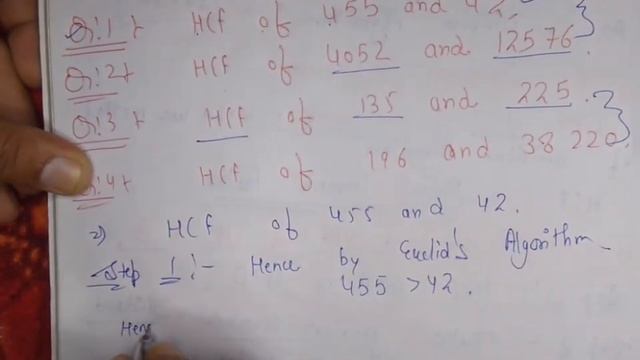 Q:1 → HCF of 455 and 42.
Q:2 → HCF of 4052 and 12576
Q:3 → HCF of 135 and 225.
Q:4 → HCF of 196 and 38 220.
2) HCF of 455 and 42.
Step 1 :- Hence by Euclid's Algorithm
455 > 42.
Hen